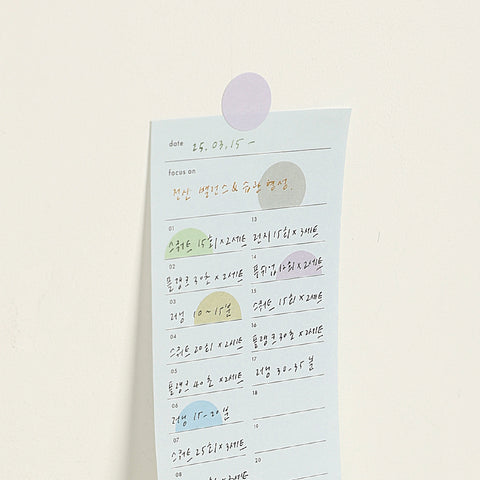 date 25. 03. 15 -
focus on
전신 밸런스 & 습관 형성.
01
스쿼트 15회 x 2세트
02
플랭크 30초 x 2세트
03
러닝 10~15분
04
스쿼트 20회 x 2세트
05
플랭크 40초 x 2세트
06
러닝 15-20분
07
스쿼트 25회 x 3세트
08
13
런지 15회 x 3세트
14
푸쉬업 12회 x 2세트
15
스쿼트 15회 x 2세트
16
플랭크 30초 x 2세트
17
러닝 30-35분
18
19
20